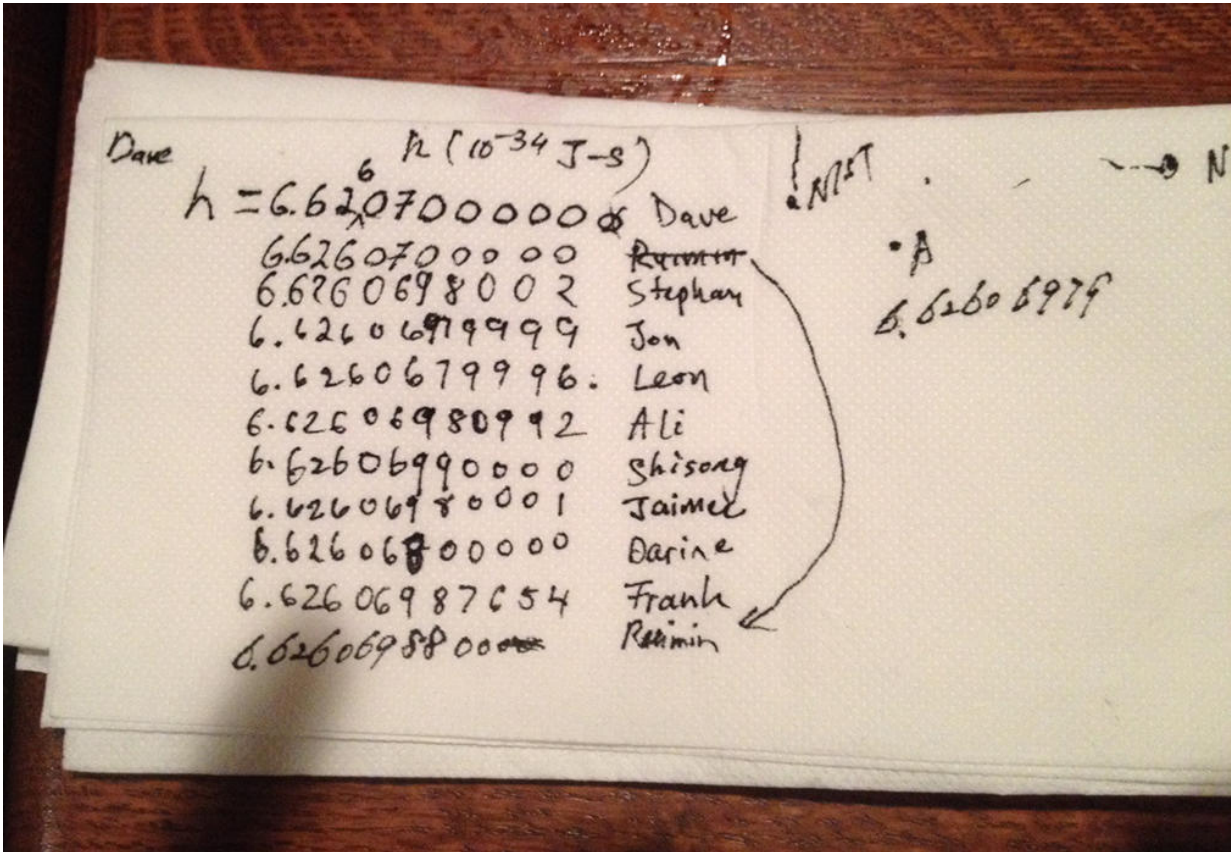 Dave
h (10-34 J-s)
6
h = 6.620700000 Dave
6.62607000000 Ruimin
6.6260698002 Stephan
6.62606979999 Jon
6.62606799996. Leon
6.62606980992 Ali
6.62606990000 Shisong
6.62606980001 Jaimec
6.62606800000 Darine
6.62606987654 Frank
6.626069880000 Ruimin
NIST
N
A
6.62606979